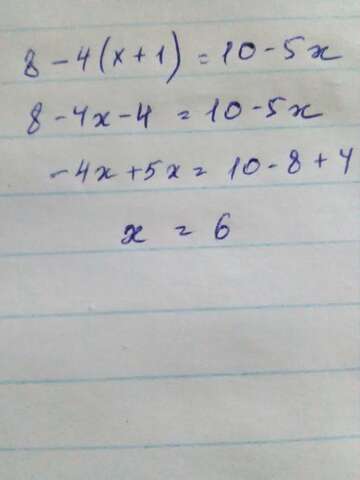 8 - 4(x + 1) = 10 - 5x
8 - 4x - 4 = 10 - 5x
- 4x + 5x = 10 - 8 + 4
x = 6